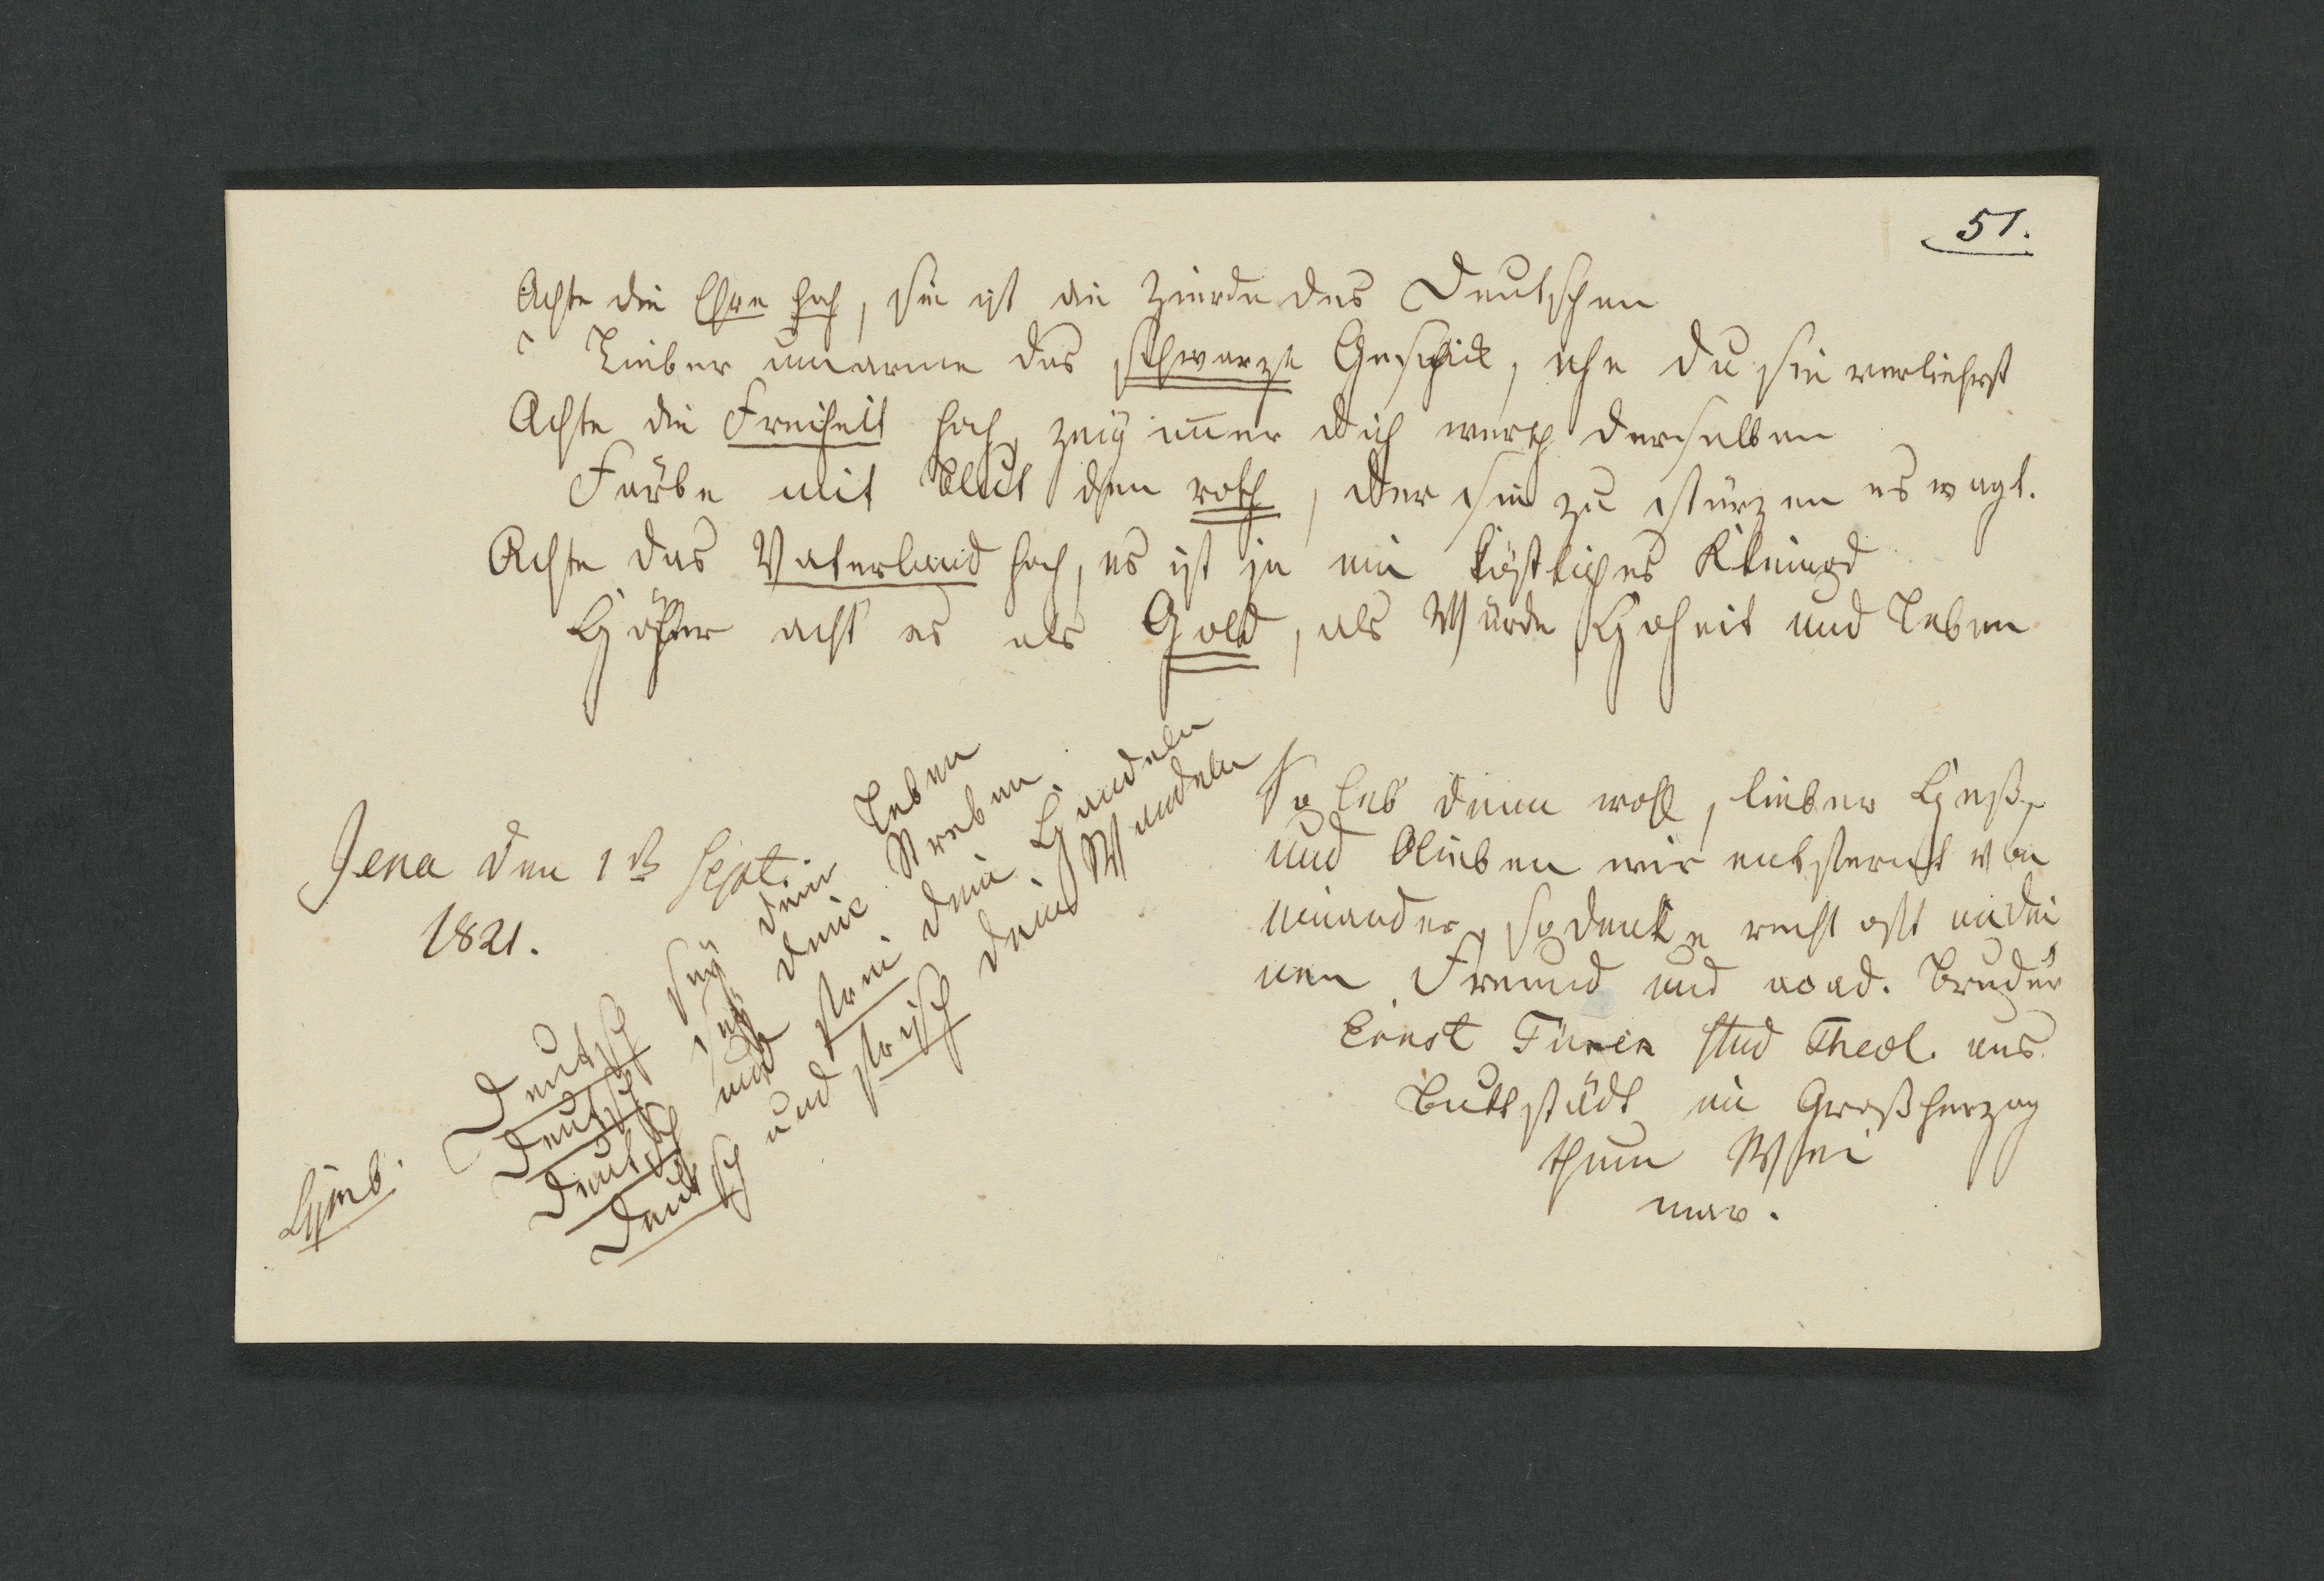 51.
Achte die Ehre hoch, sie ist die Zierde des Deutschen
Lieber umarme das schwarze Geschick, ehe du sie verliehrst
Achte die Freiheit hoch, zeig im̅er dich werth derselben
Färbe mit Blut den roth, der sie zu stürzen es wagt.
Achte das Vaterland hoch, es ist ja ein köstliches Kleinod
Höher acht' es als Gold, als Würde, Hoheit und Leben
Jena den 1st Sept.
1821.
Symb.
Deutsch sey dein Leben
Deutsch sey dein Streben
Deutsch und frei dein Handeln
Deutsch und frisch dein Wandeln
So leb' denn wohl, lieber Heß,
und blieben wir entfernt von
einander, so denke recht oft an dei
nen Freund und acad. Bruder
Ernst stud Theol. aus
Buttstädt im Großherzog
thum Wei
mar.